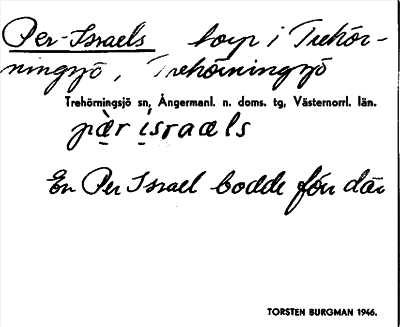 Per-Israels torp i Trehör-
ningsjö, Trehörningsjö
Trehörningsjö sn, Ångermanl. n. doms. tg, Västernorrl. län.
pàr ísraəls
En Per Israel bodde förr där
TORSTEN BURGMAN 1946.